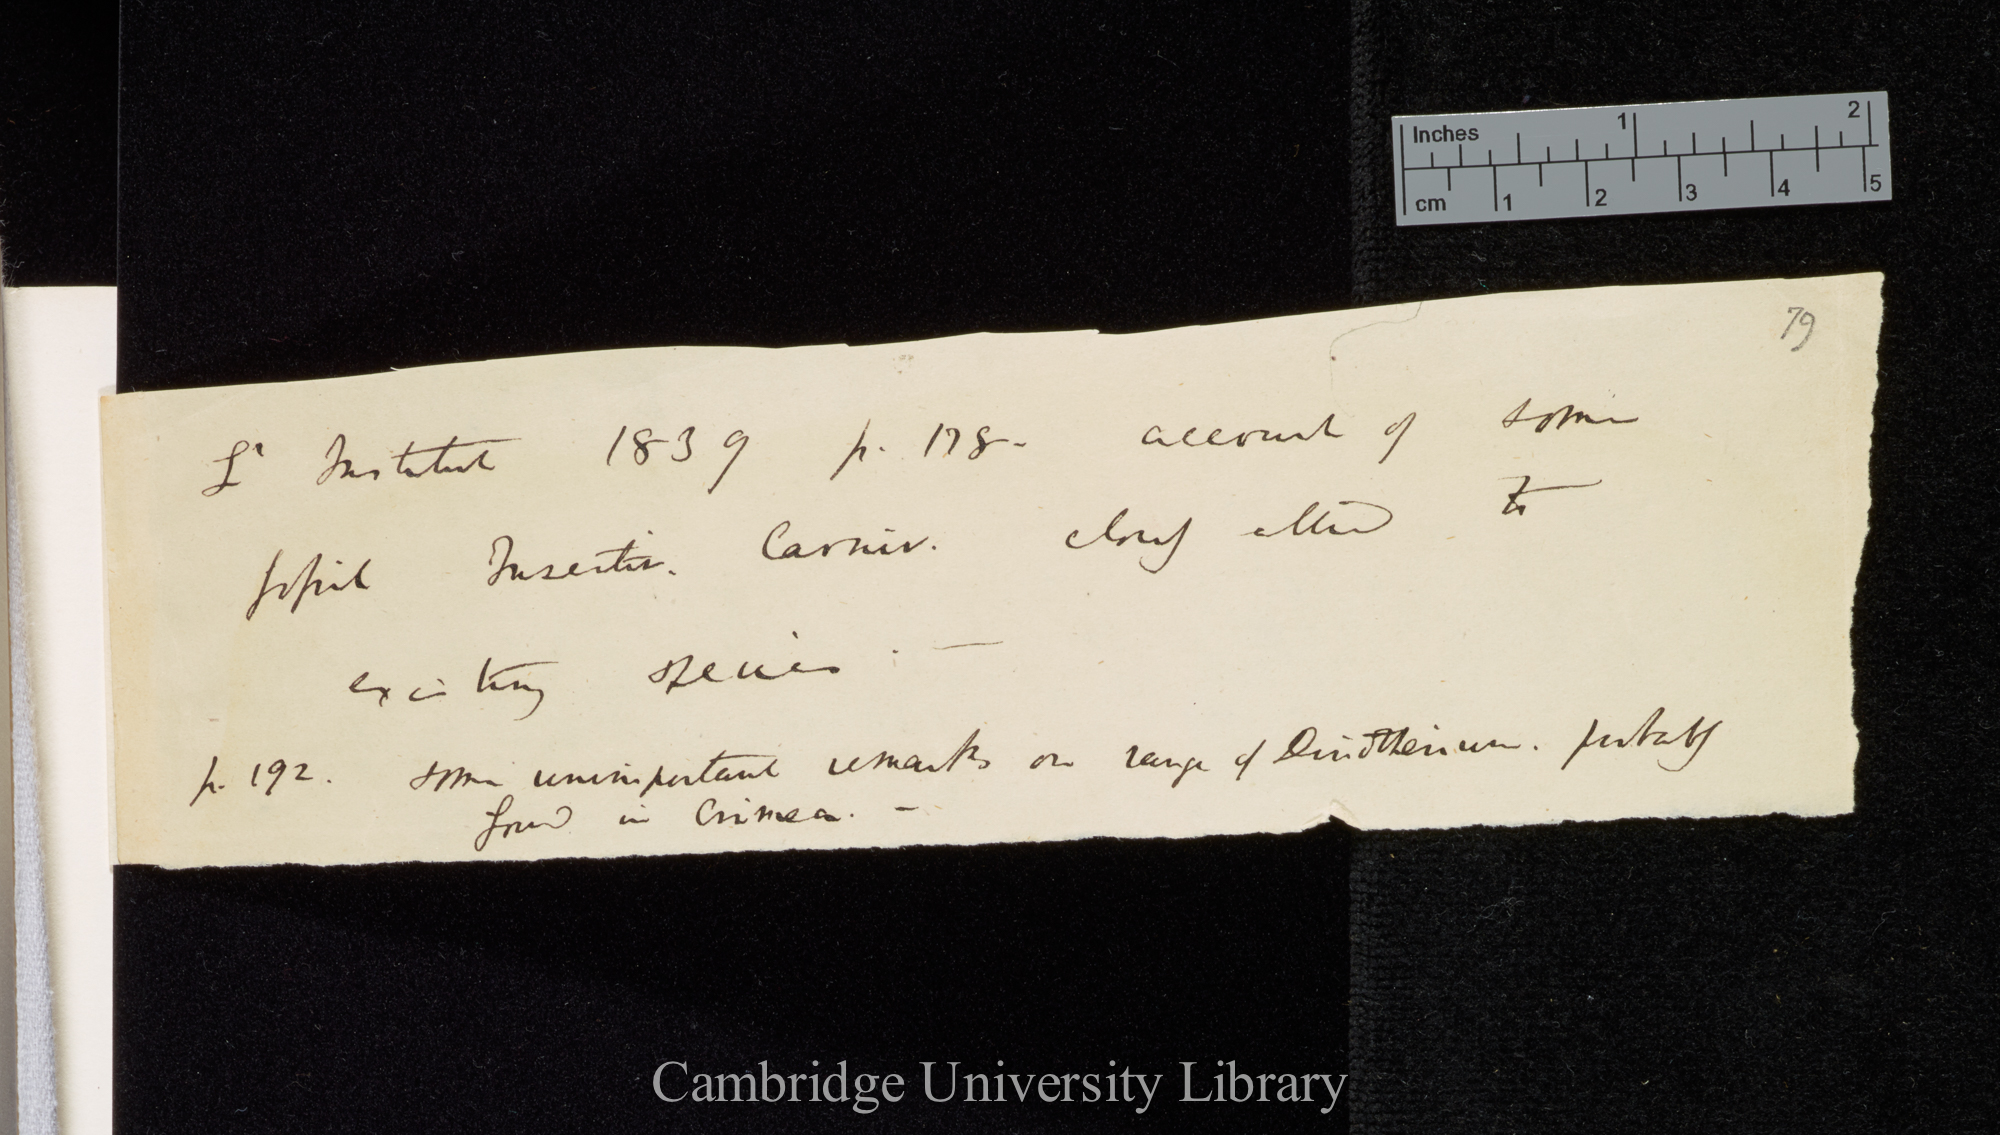 Inches 1 2
cm 1 2 3 4 5
79
L' Institut 1839 p. 178. account of some
fossil Insectiv. Carniv. closely allied to
existing species. —
p. 192. some unimportant remarks on range of Dinotherium. probably
found in Crimea. —
Cambridge University Library